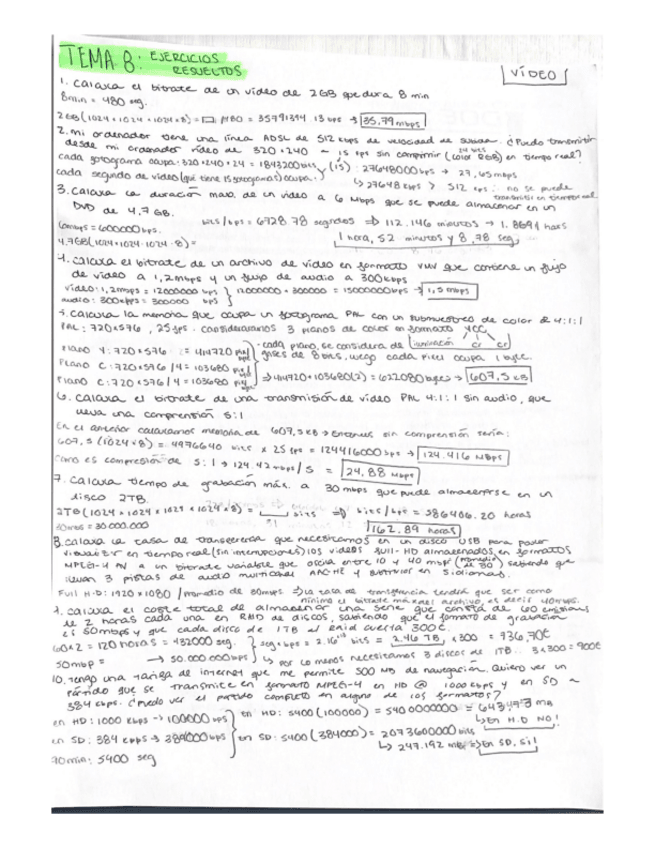 TEMA 8: EJERCICIOS
RESUELTOS
VÍDEO
1. Calcula el bitrate de un video de 2GB que dura 8 min
8min = 480 seg.
2GB (1024 x 1024 x 1024 x 8) = /480 = 35791394.13 bps → 35,79 mbps
2. mi ordenador tiene una línea ADSL de 512 kbps de velocidad de subida. ¿Puedo transmitir
desde mi ordenador video de 320 x 240 15 fps sin comprimir (color RGB) en tiempo real?
24 bits
cada fotograma ocupa: 320 x 240 x 24 = 1843200 bits
cada segundo de video (que tiene 15 fotogramas) ocupa: (15): 27648000 bps → 27,65 mbps
↳ 27648 kbps > 512 kps: no se puede
transmitir en tiempo real
3. Calcula la duración max. de un video a 6 mbps que se puede almacenar en un
DVD de 4,7 GB.
6mbps = 6000000 bps.
bits/bps = 6728.78 segundos ⇒ 112.146 minutos → 1.8691 horas
4.7GB (1024·1024·1024·8) =
1 hora, 52 minutos y 8,78 seg
4. calcula el bitrate de un archivo de video en formato que contiene un flujo
de video a 1,2mbps y un flujo de audio a 300kbps
video: 1,2mbps = 1200000 bps
audio: 300kbps = 300000 bps
1200000 + 300000 = 1500000bps → 1,5 mbps
5. Calcula la memoria que ocupa un fotograma PAL con un submuestreo de color 4:1:1
PAL: 720x576, 25 fps. consideraremos 3 planos de color en formato YCC
luminancia Cr Cr
Plano Y: 720 x 576 = 414720 pix/
Plano C: 720 x 576 / 4 = 103680 pix/
Plano C: 720 x 576 / 4 = 103680 pix/
cada plano, se considera de
grises de 8 bits, luego cada pixel ocupa 1 byte.
⇒ 414720 + 103680(2) = 622080 bytes → 607,5 KB
6. Calcula el bitrate de una transmisión de video PAL 4:1:1 sin audio, que
lleva una compresión 5:1
En el anterior calculamos memoria de 607,5 KB → Entonces sin compresión sería:
607,5 (1024 x 8) = 4976640 bits x 25 fps = 124416000 bps → 124.416 MBps
Como es compresión de 5:1 → 124.42 mbps / 5 = 24,88 Mbps
7. Calcula tiempo de grabación máx. a 30 mbps que puede almacenarse en un
disco 2TB.
2TB (1024 x 1024 x 1024 x 1024 x 8) = bits ⇒ bits/bps = 586406.20 horas
30mbs = 30.000.000
162.89 horas
8. calcula la tasa de transferencia que necesitamos en un disco USB para poder
visualizar en tiempo real (sin interrupciones) los videos full-HD almacenados en formatos
MPEG-4 a un bitrate variable que oscila entre 10 y 40 mbps (promedio de 30) sabiendo que
llevan 3 pistas de audio multicanal y subtitulos en 5 idiomas.
Full H.D: 1920 x 1080 / promedio de 30mbps ⇒ La tasa de transferencia tendrá que ser como
mínimo el bitrate max del archivo es decir 40mbps.
9. calcula el coste total de almacenar una serie que consta de 60 emisiones
de 2 horas cada una en RAID de discos, sabiendo que el formato de grabación
es 50mbps y que cada disco de 1TB cuesta 300€.
60x2 = 120 horas = 432000 seg.
50mbp = → 50.000.000bps
seg x bps = 2.16 bits = 2.46 TB, x 300 = 736,70€
↳ por lo menos necesitamos 3 discos de 1TB. 3 x 300 = 900€
10. Tengo una tarifa de internet que me permite 500 MB de navegación. Quiero ver un
partido que se transmite en formato MPEG-4 en HD @ 1000 kbps y en SD
384 kbps. ¿Puedo ver el partido completo en alguno de los formatos?
en HD: 1000 Kbps → 100000 bps
en SD: 384 kbps → 384000 bps
90min: 5400 seg
en HD: 5400 (100000) = 5400000000 = 643,73 MB
↳ En H.D NO!
en SD: 5400 (384000) = 2073600000 bits
↳ 247.192 mb ⇒ En SD, Si!